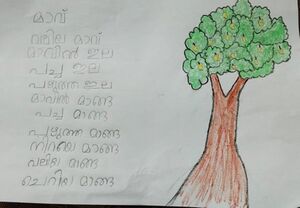 മാവ്
വലിയ മാവ്
മാവിൻ ഇല
പച്ച ഇല
പഴുത്ത ഇല
മാവിൻ മാങ്ങ
പച്ച മാങ്ങ
പഴുത്ത മാങ്ങ
നിറയെ മാങ്ങ
വലിയ മാങ്ങ
ചെറിയ മാങ്ങ